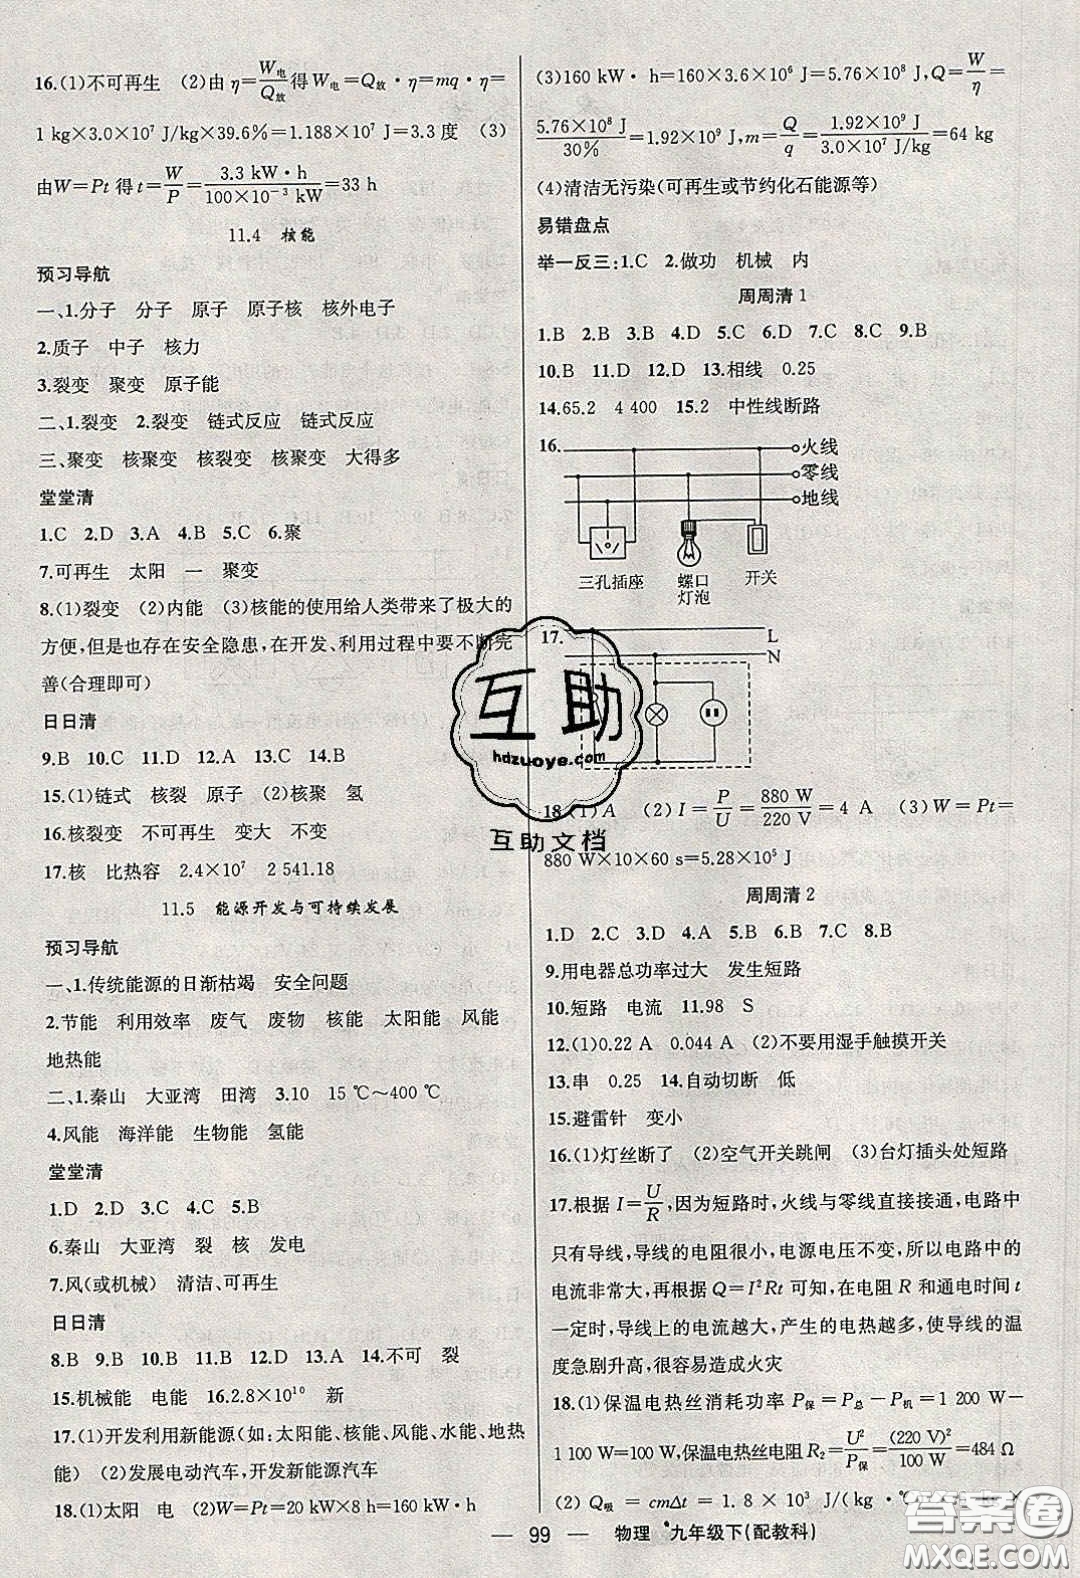 16.(1)不可再生 (2)由 η=W电/Q放 得 W电=Q放·η=mq·η=
1 kg×3.0×10⁷ J/kg×39.6%=1.188×10⁷ J=3.3 度 (3)
由W=Pt 得 t=W/P=3.3 kW·h/100×10⁻³ kW=33 h
11.4 核能
预习导航
一、1.分子 分子 原子 原子核 核外电子
2.质子 中子 核力
3.裂变 聚变 原子能
二、1.裂变 2.裂变 链式反应 链式反应
三、聚变 核聚变 核裂变 核聚变 大得多
堂堂清
1.C 2.D 3.A 4.B 5.C 6.聚
7.可再生 太阳 一 聚变
8.(1)裂变 (2)内能 (3)核能的使用给人类带来了极大的
方便,但是也存在安全隐患,在开发、利用过程中要不断完
善(合理即可)
日日清
9.B 10.C 11.D 12.A 13.C 14.B
15.(1)链式 核裂 原子 (2)核聚 氢
16.核裂变 不可再生 变大 不变
17.核 比热容 2.4×10⁷ 2 541.18
11.5 能源开发与可持续发展
预习导航
一、1.传统能源的日渐枯竭 安全问题
2.节能 利用效率 废气 废物 核能 太阳能 风能
地热能
二、1.秦山 大亚湾 田湾 3.10 15 ℃～400 ℃
4.风能 海洋能 生物能 氢能
堂堂清
1.D 2.D 3.C 4.C 5.B
6.秦山 大亚湾 裂 核 发电
7.风(或机械) 清洁、可再生
日日清
8.B 9.B 10.B 11.B 12.D 13.A 14.不可 裂
15.机械能 电能 16.2.8×10¹⁰ 新
17.(1)开发利用新能源(如:太阳能、核能、风能、水能、地热
能) (2)发展电动汽车,开发新能源汽车
18.(1)太阳 电 (2)W=Pt=20 kW×8 h=160 kW·h
(3)160 kW·h=160×3.6×10⁶ J=5.76×10⁸ J,Q=W/η=
5.76×10⁸ J/30%=1.92×10⁹ J,m=Q/q=1.92×10⁹ J/3.0×10⁷ J/kg=64 kg
(4)清洁无污染(可再生或节约化石能源等)
易错盘点
举一反三:1.C 2.做功 机械 内
周周清 1
1.B 2.B 3.B 4.D 5.C 6.D 7.C 8.C 9.B
10.B 11.D 12.D 13.相线 0.25
14.65.2 4 400 15.2 中性线断路
16.
火线
零线
地线
三孔插座 螺口灯泡 开关
17.
L
N
18.(1)A (2) I=P/U=880 W/220 V=4 A (3) W=Pt=
880 W×10×60 s=5.28×10⁵ J
周周清 2
1.D 2.C 3.D 4.A 5.B 6.B 7.C 8.B
9.用电器总功率过大 发生短路
10.短路 电流 11.98 S
12.(1)0.22 A 0.044 A (2)不要用湿手触摸开关
13.串 0.25 14.自动切断 低
15.避雷针 变小
16.(1)灯丝断了 (2)空气开关跳闸 (3)台灯插头处短路
17.根据 I=U/R,因为短路时,火线与零线直接接通,电路中
只有导线,导线的电阻很小,电源电压不变,所以电路中的
电流非常大,再根据 Q=I²Rt 可知,在电阻 R 和通电时间 t
一定时,导线上的电流越大,产生的电热越多,使导线的温
度急剧升高,很容易造成火灾
18.(1)保温电热丝消耗功率 P保=P总－P机=1 200 W－
1 100 W=100 W,保温电热丝电阻 R₂=U²/P保=(220 V)²/100 W=484 Ω
(2) Q吸=cmΔt=1.8×10³ J/(kg·℃)
— 99 — 物理 九年级下(配教科)
互助
hdzuoye.com
互助文档
答案圈
MXQE.COM